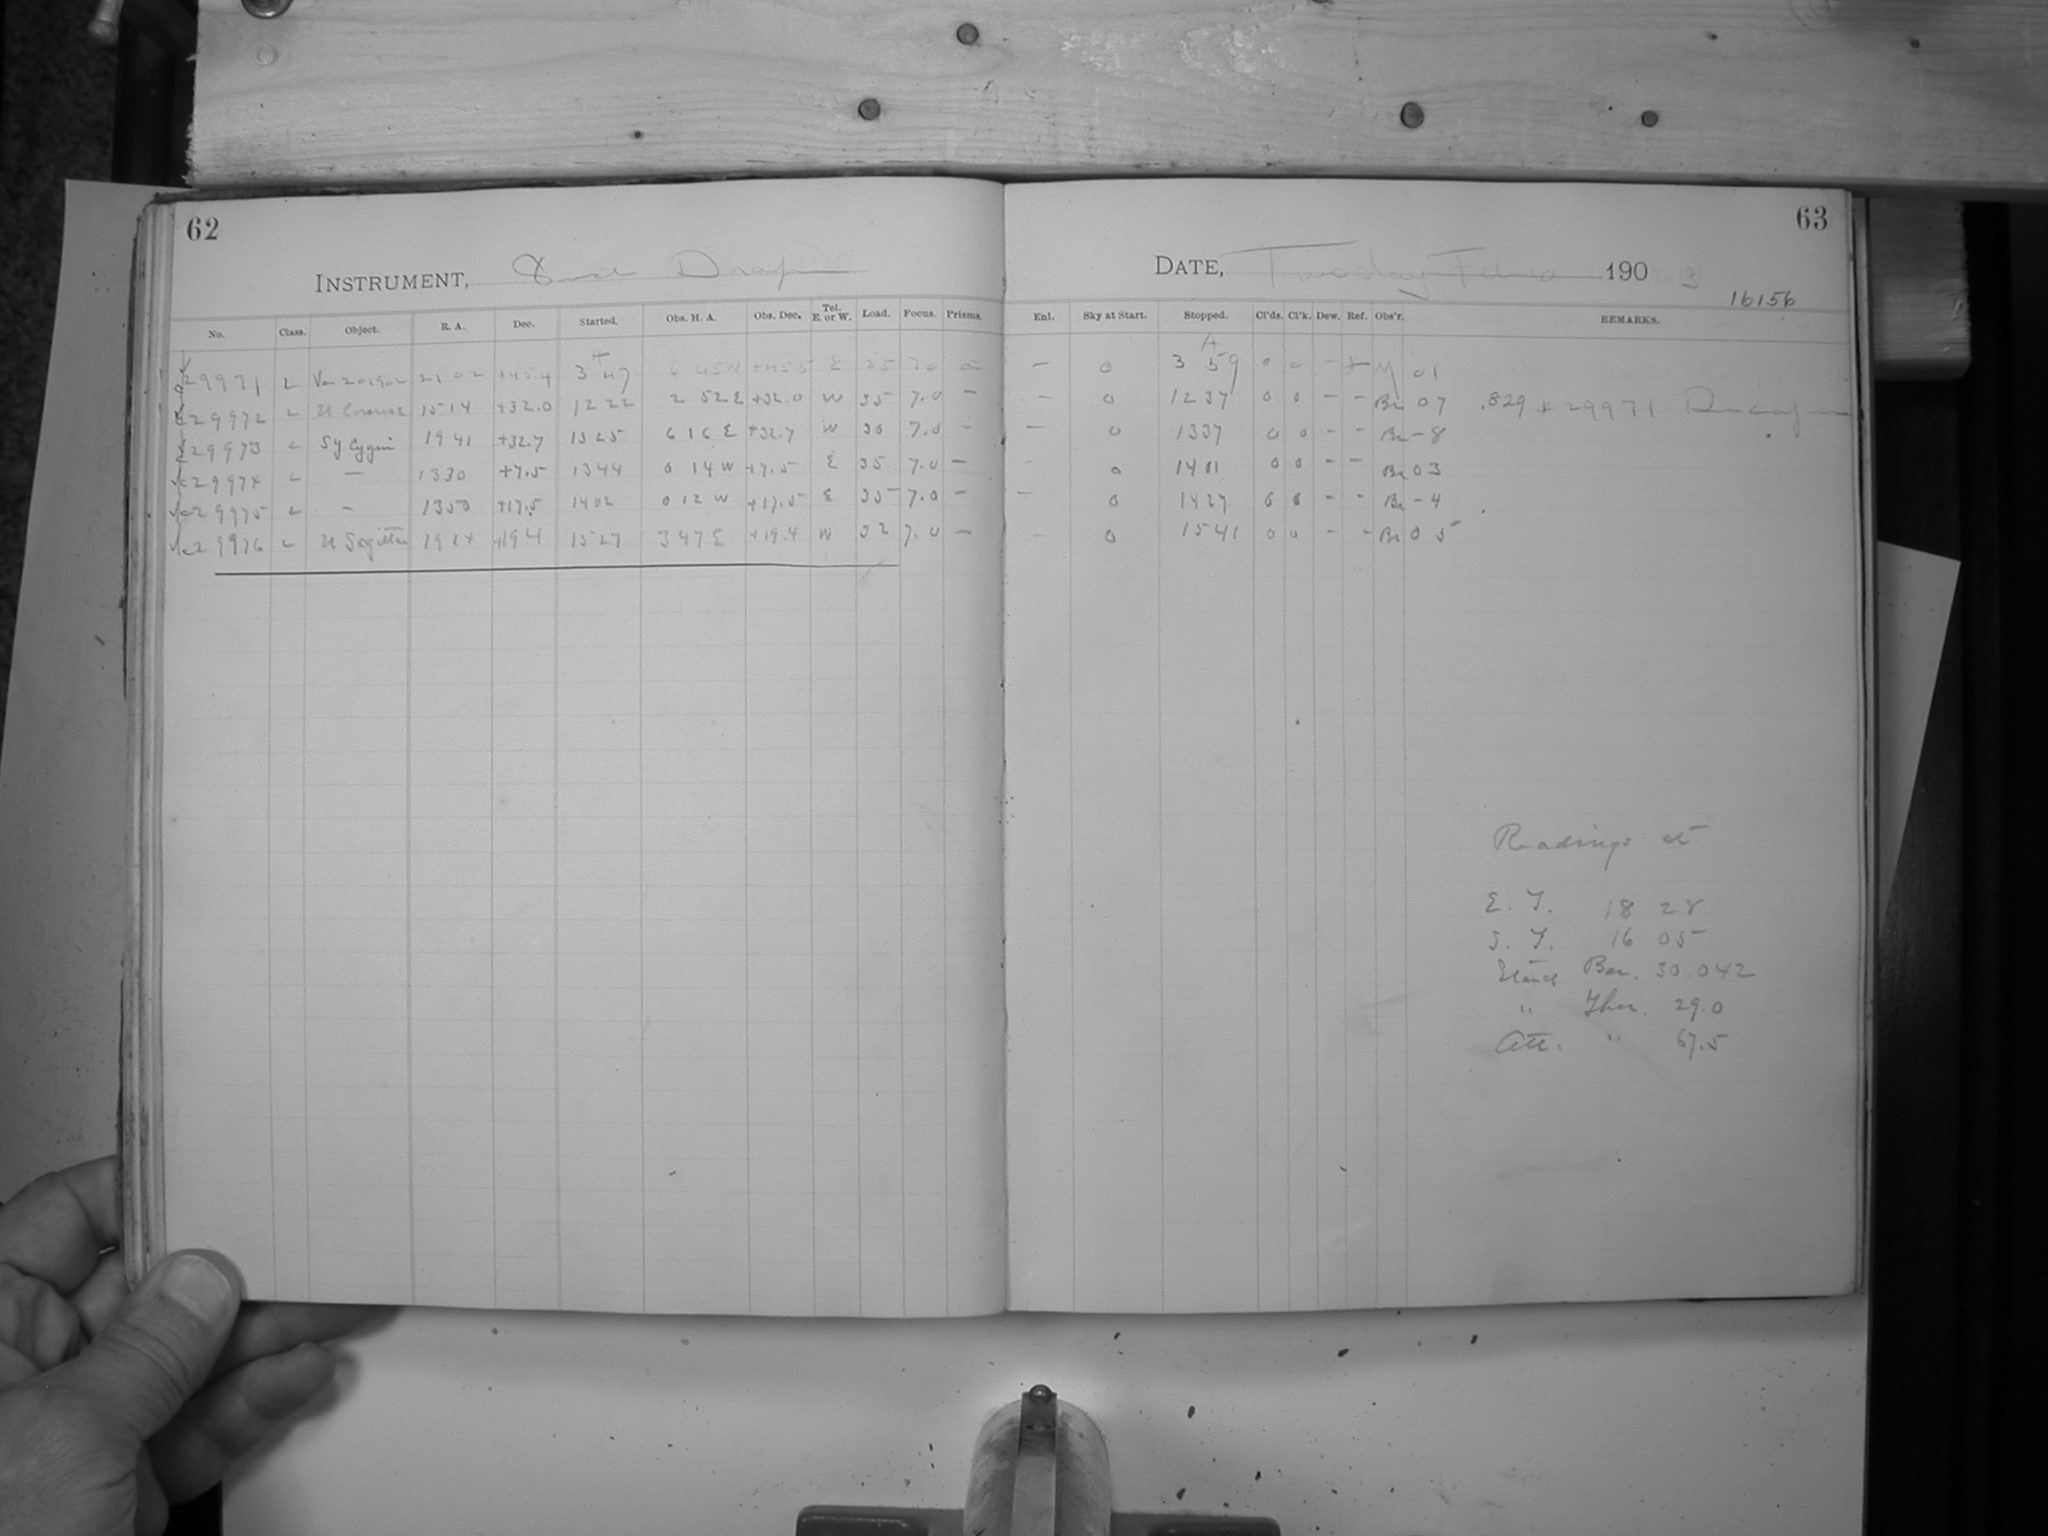 62
INSTRUMENT, 8 inch Draper
No. Class. Object. R. A. Dec. Started. Obs. H. A. Obs. Dec. Tel. E. or W. Load. Focus. Prisms.
29971 L 21 02 +45.4 3 47 6 45 W +45.5 E 25 70
29972 L U Coronae 15 14 +32.0 12 22 2 52 E +32.0 W 35 7.0 —
29973 L SY Cygni 19 41 +32.7 13 25 6 16 E +32.7 W 30 7.0 -
29974 L — 13 30 +7.5 13 44 0 14 W +7.5 E 35 7.0 —
29975 L - 13 50 +17.5 14 02 0 12 W +17.5 E 35 7.0 —
29976 L U Sagittae 19 14 +19.4 15 27 3 47 E +19.4 W 32 7.0 —
63
DATE, Tuesday 190 3
16156
Enl. Sky at Start. Stopped. Cl'ds. Cl'k. Dew. Ref. Obs'r. REMARKS.
— 0 3 59 0 0 - M 01
— 0 12 37 0 0 - - Br 07 .829 + 29971 Draper
— 0 13 37 0 0 - - Br -8
- 0 14 01 0 0 - - Br 03
— 0 14 27 0 0 - - Br -4
- 0 15 41 0 0 - - Br 05
Readings at
E. T. 18 28
S. T. 16 05
Stand Bar. 30.042
" Ther. 29.0
Att. " 67.5